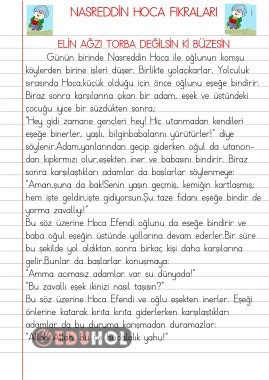 NASREDDİN HOCA FIKRALARI
ELİN AĞZI TORBA DEĞİLSİN Kİ BÜZESİN
Günün birinde Nasreddin Hoca ile oğlunun komşu
köylerden birine işleri düşer. Birlikte yolaçıkarlar. Yolculuk
sırasında Hoca,küçük olduğu için önce oğlunu eşeğe bindirir.
Biraz sonra karşılarına çıkan bir adam, eşek ve üstündeki
çocuğu iyice bir süzdükten sonra;
"Hey gidi zamane gençleri hey! Hiç utanmadan kendileri
eşeğe binerler, yaşlı, bilginbabalarını yürütürler!" diye
söylenir.Adam,yanlarından geçip giderken oğul da utanon-
dan kıpkırmızı olur,eşekten iner ve babasını bindirir. Biraz
sonra karşılaştıkları adamlar da başarlar söylenmeye:
"Aman,şuna da bak!Senin yaşın geçmiş, kemiğin kartlaşmış;
hem işte geldin,işte gidiyorsun.Şu taze fidanı eşeğe bindir de
yorma zavallıyı!"
Bu söz üzerine Hoca Efendi oğlunu da eşeğe bindirir ve
baba oğul eşeğin üstünde yollarına devam ederler.Bir süre
bu şekilde yol aldıktan sonra birkaç kişi daha karşılarına
gelir.Bunlar da başlarlar konuşmaya:
"Amma acımasız adamlar var şu dünyada!"
"Bu zavallı eşek ikinizi nasıl taşısın?"
Bu söz üzerine Hoca Efendi ve oğlu eşekten inerler. Eşeği
önlerine katarak kırıta kırıta giderlerken karşılaştıkları
adamlar da bu duruma karışmadan duramazlar:
"Allah Allah, bu ne budalalık yahu!"
EDUHOL